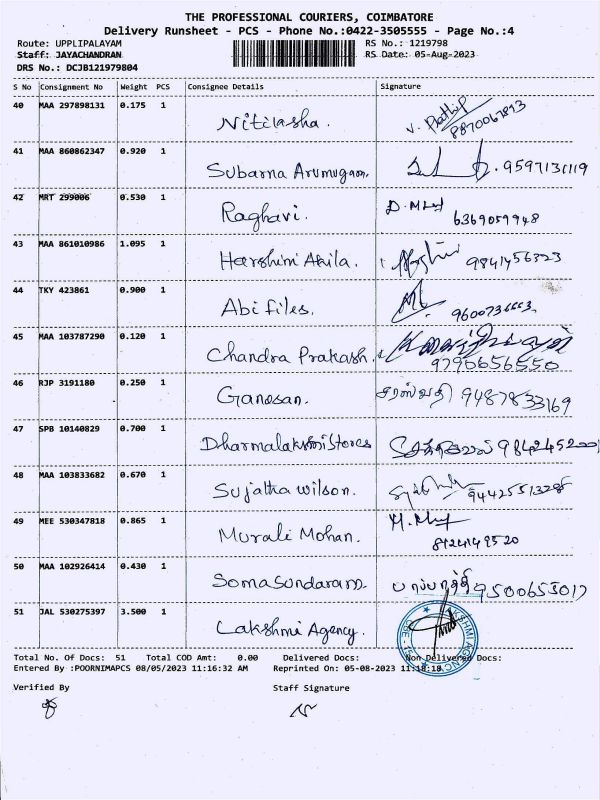 THE PROFESSIONAL COURIERS, COIMBATORE
Delivery Runsheet - PCS - Phone No.:0422-3505555 - Page No.:4
Route: UPPLIPALAYAM RS No.: 1219798
Staff: JAYACHANDRAN RS Date: 05-Aug-2023
DRS No.: DCJB121979804
S No Consignment No Weight PCS Consignee Details Signature
40 MAA 297898131 0.175 1 Nitilasha.
41 MAA 860862347 0.920 1 Subarna Arumugam. 9597131119
42 MRT 299006 0.530 1 Raghavi. 6369059948
43 MAA 861010986 1.095 1 Harshini Akila. 9841456323
44 TKY 423861 0.900 1 Abi files.
45 MAA 103787290 0.120 1 Chandra Prakash. 9790656550
46 RJP 3191180 0.250 1 Ganesan. சரஸ்வதி 9487833169
47 SPB 10140829 0.700 1 Dharmalakshmi Stores
48 MAA 103833682 0.670 1 Sujatha Wilson.
49 MEE 530347818 0.865 1 Murali Mohan.
50 MAA 102926414 0.430 1 Somasundaram. 9500653017
51 JAL 530275397 3.500 1 Lakshmi Agency.
Total No. Of Docs: 51 Total COD Amt: 0.00 Delivered Docs: Non Delivered Docs:
Entered By :POORNIMAPCS 08/05/2023 11:16:32 AM Reprinted On: 05-08-2023 11:18:18
Verified By Staff Signature